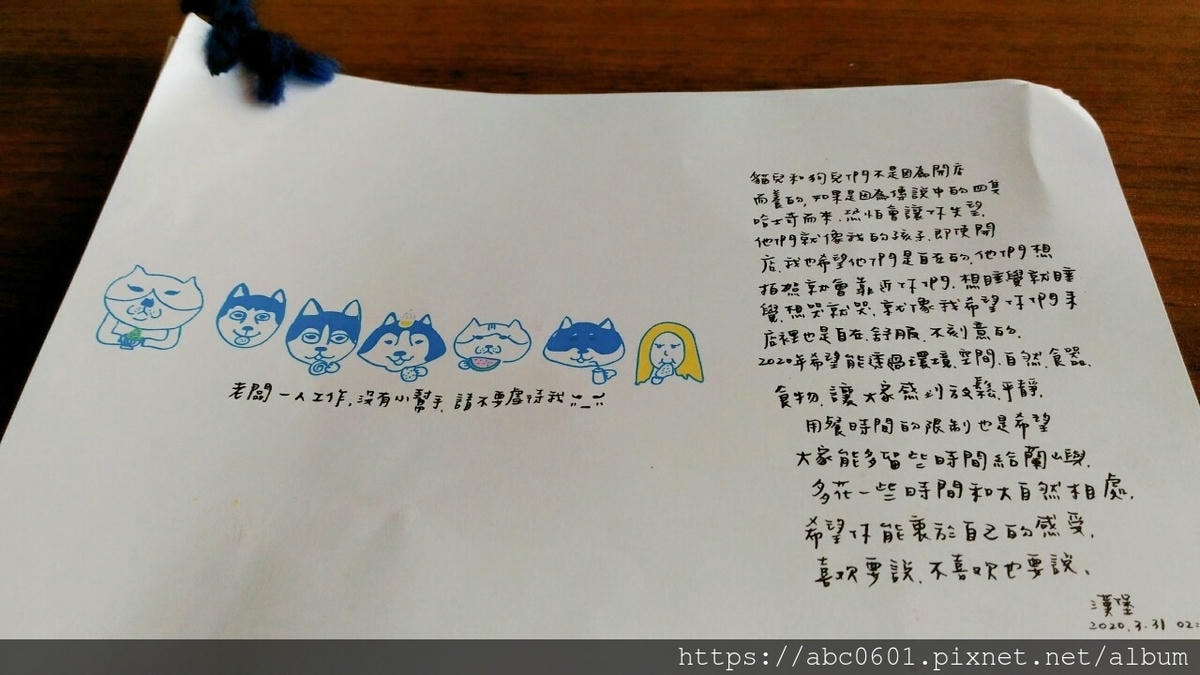 老闆一人工作,沒有小幫手,請不要虐待我
貓兒和狗兒們不是因為開店
而養的,如果是因為傳說中的四隻
哈士奇而來,恐怕會讓仔失望,
他們就像我的孩子,即使開
店,我也希望他們是自在的,他們想
拍照就會靠近仔們,想睡覺就睡
覺,想哭就哭,就像我希望仔們來
店裡也是自在,舒服,不刻意的.
2020年希望能透過環境,空間,自然,食器,
食物,讓大家感到放鬆,平靜.
用餐時間的限制也是希望
大家能多留些時間給蘭嶼,
多花一些時間和大自然相處.
希望仔能衷於自己的感受,
喜歡要說,不喜歡也要說、
漢堡
2020.3.31 02:
https://abc0601.pixnet.net/album